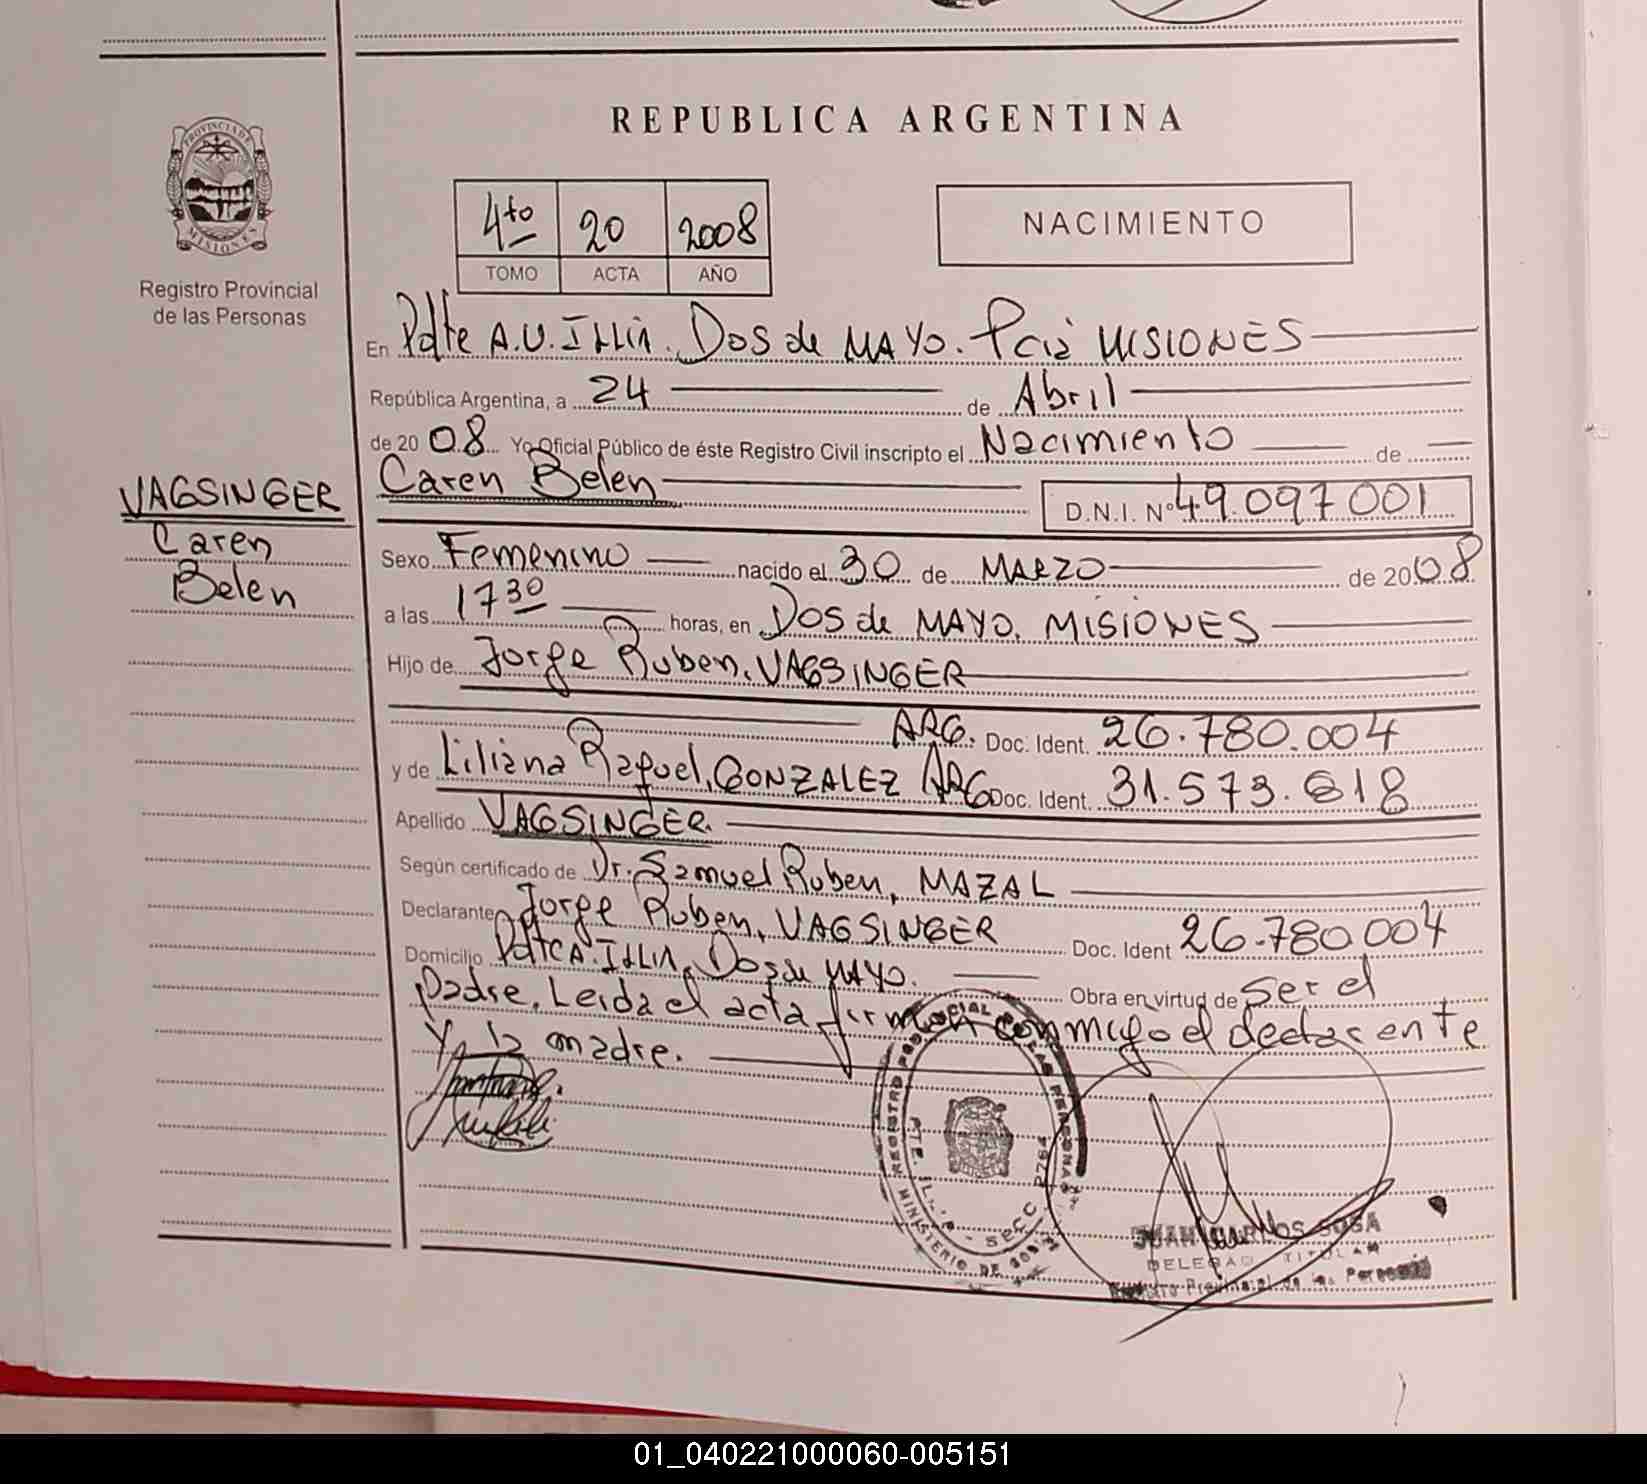 REPUBLICA ARGENTINA
PROVINCIA DE
MISIONES
Registro Provincial
de las Personas
4to 20 2008
TOMO ACTA AÑO
NACIMIENTO
En Pdte A.U. Illia. Dos de MAYO. Pcia MISIONES
República Argentina, a 24 de Abril
de 2008 Yo Oficial Público de éste Registro Civil inscripto el Nacimiento de
Caren Belen
D.N.I. Nº 49.097001
VAGSINGER
Caren
Belen
Sexo Femenino nacido el 30 de MARZO de 2008
a las 17 30 horas, en Dos de MAYO. MISIONES
Hijo de Jorge Ruben, VAGSINGER
ARG. Doc. Ident. 26.780.004
y de Liliana Raquel, GONZALEZ ARG Doc. Ident. 31.573.618
Apellido VAGSINGER.
Según certificado de Dr. Samuel Ruben, MAZAL
Declarante Jorge Ruben, VAGSINGER Doc. Ident 26.780004
Domicilio Pdte A. Illia, Dos de MAYO. Obra en virtud de Ser el
Padre. Leida el acta firman conmigo el declarente
Y la madre.
REGISTRO PROVINCIAL DE LAS PERSONAS
MINISTERIO DE GOB
JUAN CARLOS SOSA
DELEGADO TITULAR
Registro Provincial de las Personas
01_040221000060-005151